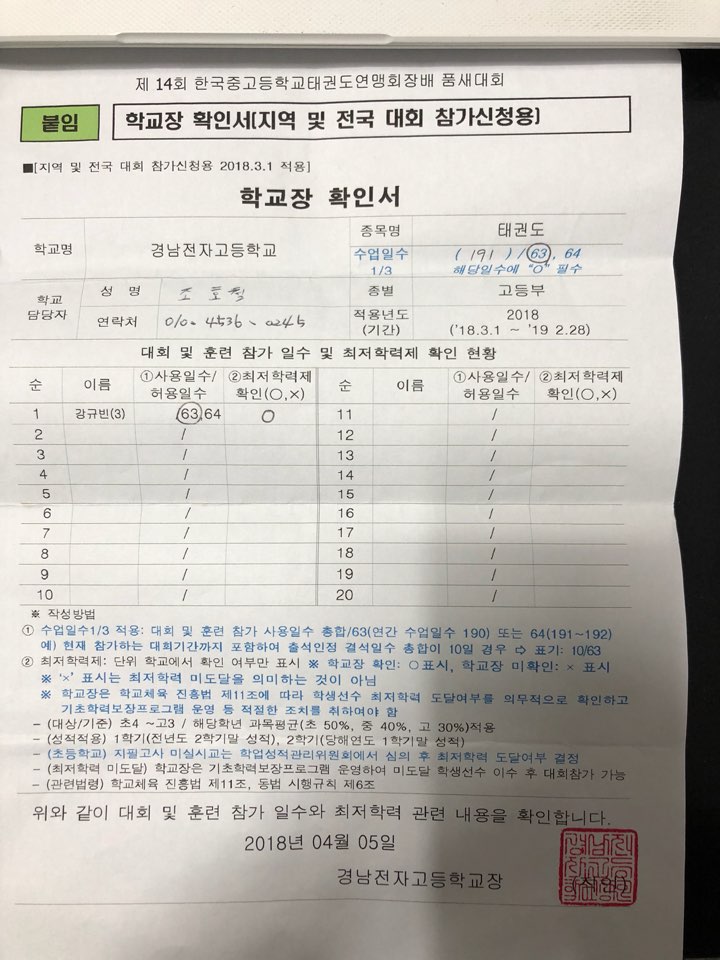 제 14회 한국중고등학교태권도연맹회장배 품새대회
붙임
학교장 확인서(지역 및 전국 대회 참가신청용)
■[지역 및 전국 대회 참가신청용 2018.3.1 적용]
학교장 확인서
학교명 경남전자고등학교 종목명 태권도
수업일수 1/3 ( 191 ) / 63, 64
해당일수에 "O" 필수
학교 담당자 성 명 조호칠 종별 고등부
연락처 010-4536-0245 적용년도 (기간) 2018 ('18.3.1 ~ '19 2.28)
대회 및 훈련 참가 일수 및 최저학력제 확인 현황
순 이름 ①사용일수/허용일수 ②최저학력제 확인(○,×) 순 이름 ①사용일수/허용일수 ②최저학력제 확인(○,×)
1 강규빈(3) 63,64 ○ 11 /
2 / 12 /
3 / 13 /
4 / 14 /
5 / 15 /
6 / 16 /
7 / 17 /
8 / 18 /
9 / 19 /
10 / 20 /
※ 작성방법
① 수업일수1/3 적용: 대회 및 훈련 참가 사용일수 총합/63(연간 수업일수 190) 또는 64(191~192)
예) 현재 참가하는 대회기간까지 포함하여 출석인정 결석일수 총합이 10일 경우 ⇨ 표기: 10/63
② 최저학력제: 단위 학교에서 확인 여부만 표시 ※ 학교장 확인: ○표시, 학교장 미확인: × 표시
※ '×' 표시는 최저학력 미도달을 의미하는 것이 아님
※ 학교장은 학교체육 진흥법 제11조에 따라 학생선수 최저학력 도달여부를 의무적으로 확인하고
기초학력보장프로그램 운영 등 적절한 조치를 취하여야 함
- (대상/기준) 초4 ~고3 / 해당학년 과목평균(초 50%, 중 40%, 고 30%)적용
- (성적적용) 1학기(전년도 2학기말 성적), 2학기(당해연도 1학기말 성적)
- (초등학교) 지필고사 미실시교는 학업성적관리위원회에서 심의 후 최저학력 도달여부 결정
- (최저학력 미도달) 학교장은 기초학력보장프로그램 운영하여 미도달 학생선수 이수 후 대회참가 가능
- (관련법령) 학교체육 진흥법 제11조, 동법 시행규칙 제6조
위와 같이 대회 및 훈련 참가 일수와 최저학력 관련 내용을 확인합니다.
2018년 04월 05일
경남전자고등학교장 (직인)